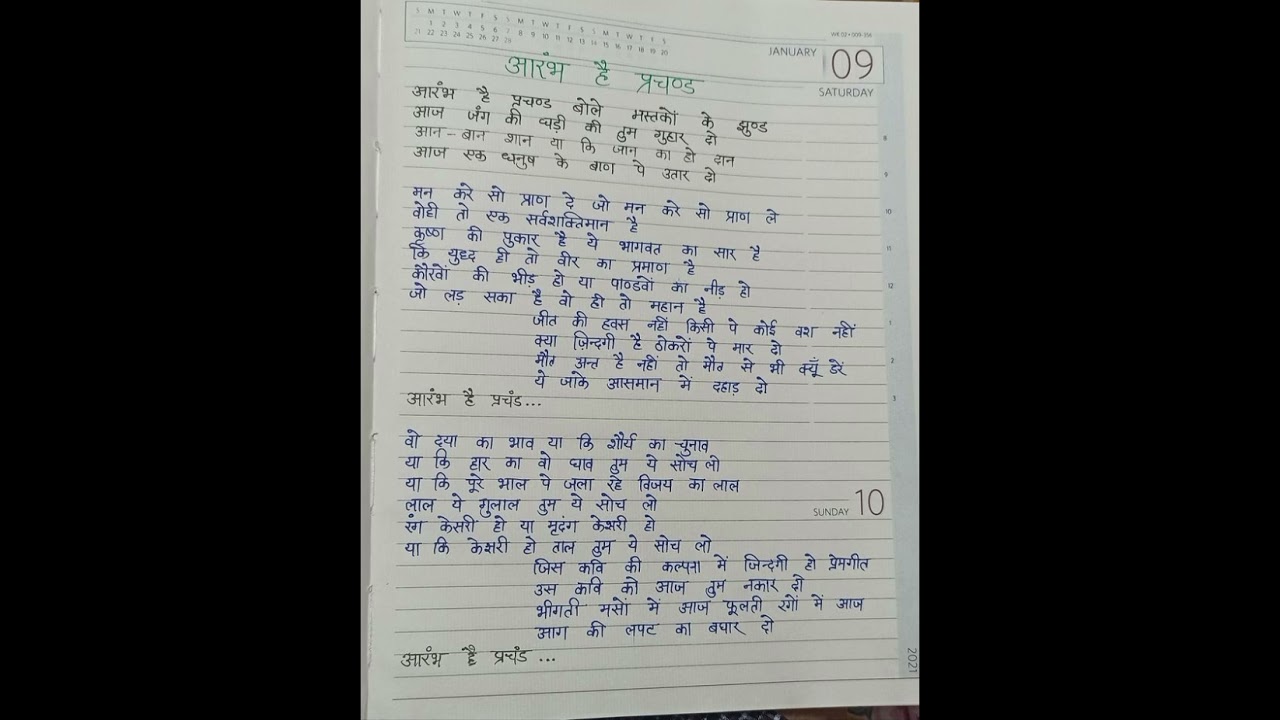 S M T W T F S S M T W T F S S M T W T F S
1 2 3 4 5 6 7 8 9 10 11 12 13 14 15 16 17 18 19 20
21 22 23 24 25 26 27 28
JANUARY 09
SATURDAY
आरंभ है प्रचण्ड
आरंभ है प्रचण्ड बोले मस्तकों के झुण्ड
आज जंग की घड़ी की तुम गुहार दो
आन – बान शान या कि जान का हो दान
आज एक धनुष के बाण पे उतार दो
मन करे सो प्राण दे जो मन करे सो प्राण ले
वोही तो एक सर्वशक्तिमान है
कृष्ण की पुकार है ये भागवत का सार है
कि युध्द ही तो वीर का प्रमाण है
कौरवों की भीड़ हो या पाण्डवों का नीड़ हो
जो लड़ सका है वो ही तो महान है
जीत की हवस नहीं किसी पे कोई वश नहीं
क्या ज़िन्दगी है ठोकरों पे मार दो
मौत अन्त है नहीं तो मौत से भी क्यूँ डरें
ये जाके आसमान में दहाड़ दो
आरंभ है प्रचंड...
वो दया का भाव या कि शौर्य का चुनाव
या कि हार का वो घाव तुम ये सोच लो
या कि पूरे भाल पे जला रहे विजय का लाल
लाल ये गुलाल तुम ये सोच लो
रंग केसरी हो या मृदंग केशरी हो
या कि केशरी हो ताल तुम ये सोच लो
SUNDAY 10
जिस कवि की कल्पना में जिन्दगी हो प्रेमगीत
उस कवि को आज तुम नकार दो
भीगती मसों में आज फूलती रगों में आज
आग की लपट का बघार दो
आरंभ है प्रचंड...
8
9
10
11
12
1
2
3
2021